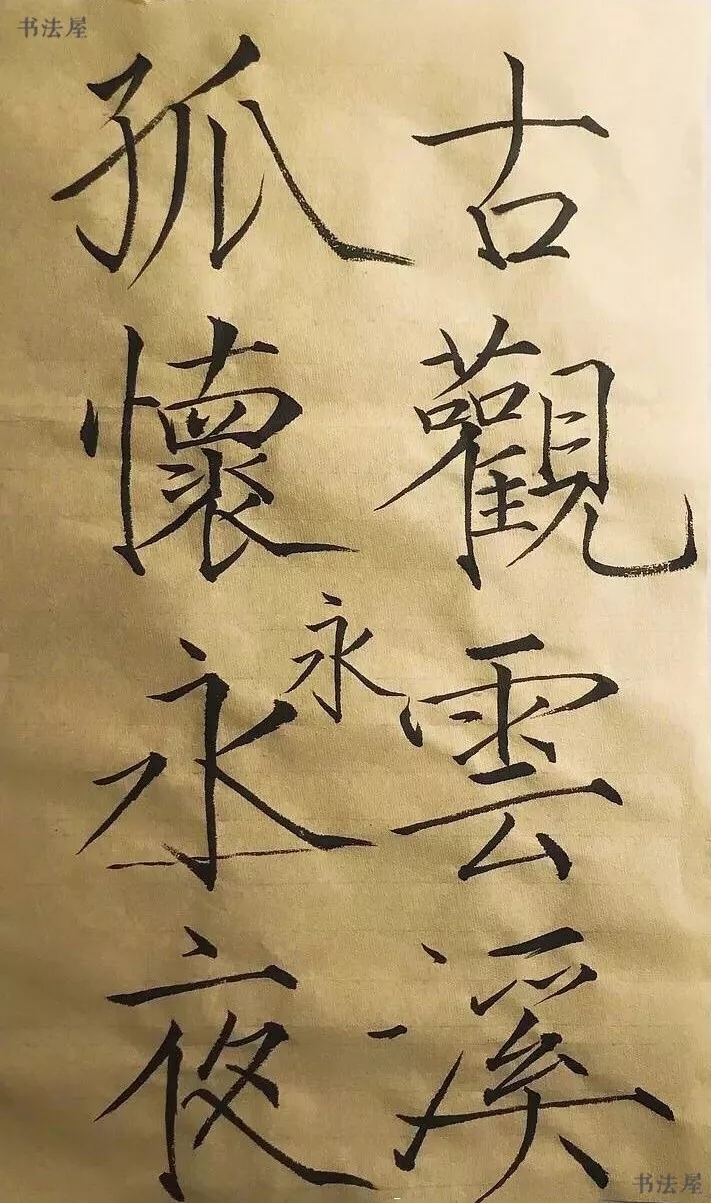 古觀雲溪
孤懷永夜
永
书法屋
书法屋